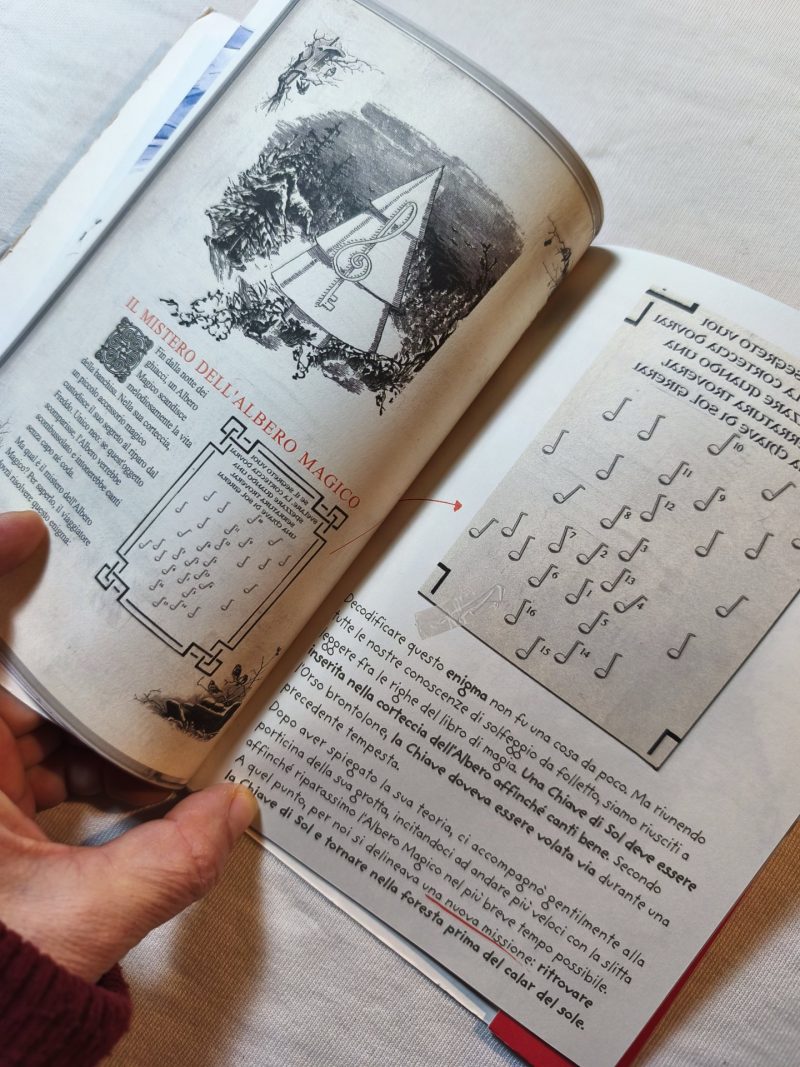 IL MISTERO DELL'ALBERO MAGICO
Fin dalla notte dei
ghiacci, un Albero
Magico scandisce
melodiosamente la vita
della banchisa. Nella sua corteccia,
un piccolo accessorio magico
custodisce il suo segreto al riparo dal
freddo. Unico neo: se quest'oggetto
scomparisse, l'Albero verrebbe
scombussolato e intonerebbe canti
senza capo né coda.
Ma qual è il mistero dell'Albero
Magico? Per saperlo, il viaggiatore
dovrà risolvere questo enigma:
SE IL SEGRETO VUOI
LA CORTECCIA DOVRAI
SPEZZARE QUANDO UNA
SERRATURA TROVERAI,
UNA CHIAVE DI SOL GIRERAI
SEGRETO VUOI
LA CORTECCIA DOVRAI
ZARE QUANDO UNA
RRATURA TROVERAI,
A CHIAVE DI SOL GIRERAI
10
11 9
12
8
7 2 3
6 1 13
4
16 5
15 14
Decodificare questo enigma non fu una cosa da poco. Ma riunendo
tutte le nostre conoscenze di solfeggio da folletto, siamo riusciti a
leggere fra le righe del libro di magia. Una Chiave di Sol deve essere
inserita nella corteccia dell'Albero affinché canti bene. Secondo
l'Orso brontolone, la Chiave doveva essere volata via durante una
precedente tempesta.
Dopo aver spiegato la sua teoria, ci accompagnò gentilmente alla
porticina della sua grotta, incitandoci ad andare più veloci con la slitta
affinché riparassimo l'Albero Magico nel più breve tempo possibile.
A quel punto, per noi si delineava una nuova missione: ritrovare
la Chiave di Sol e tornare nella foresta prima del calar del sole.